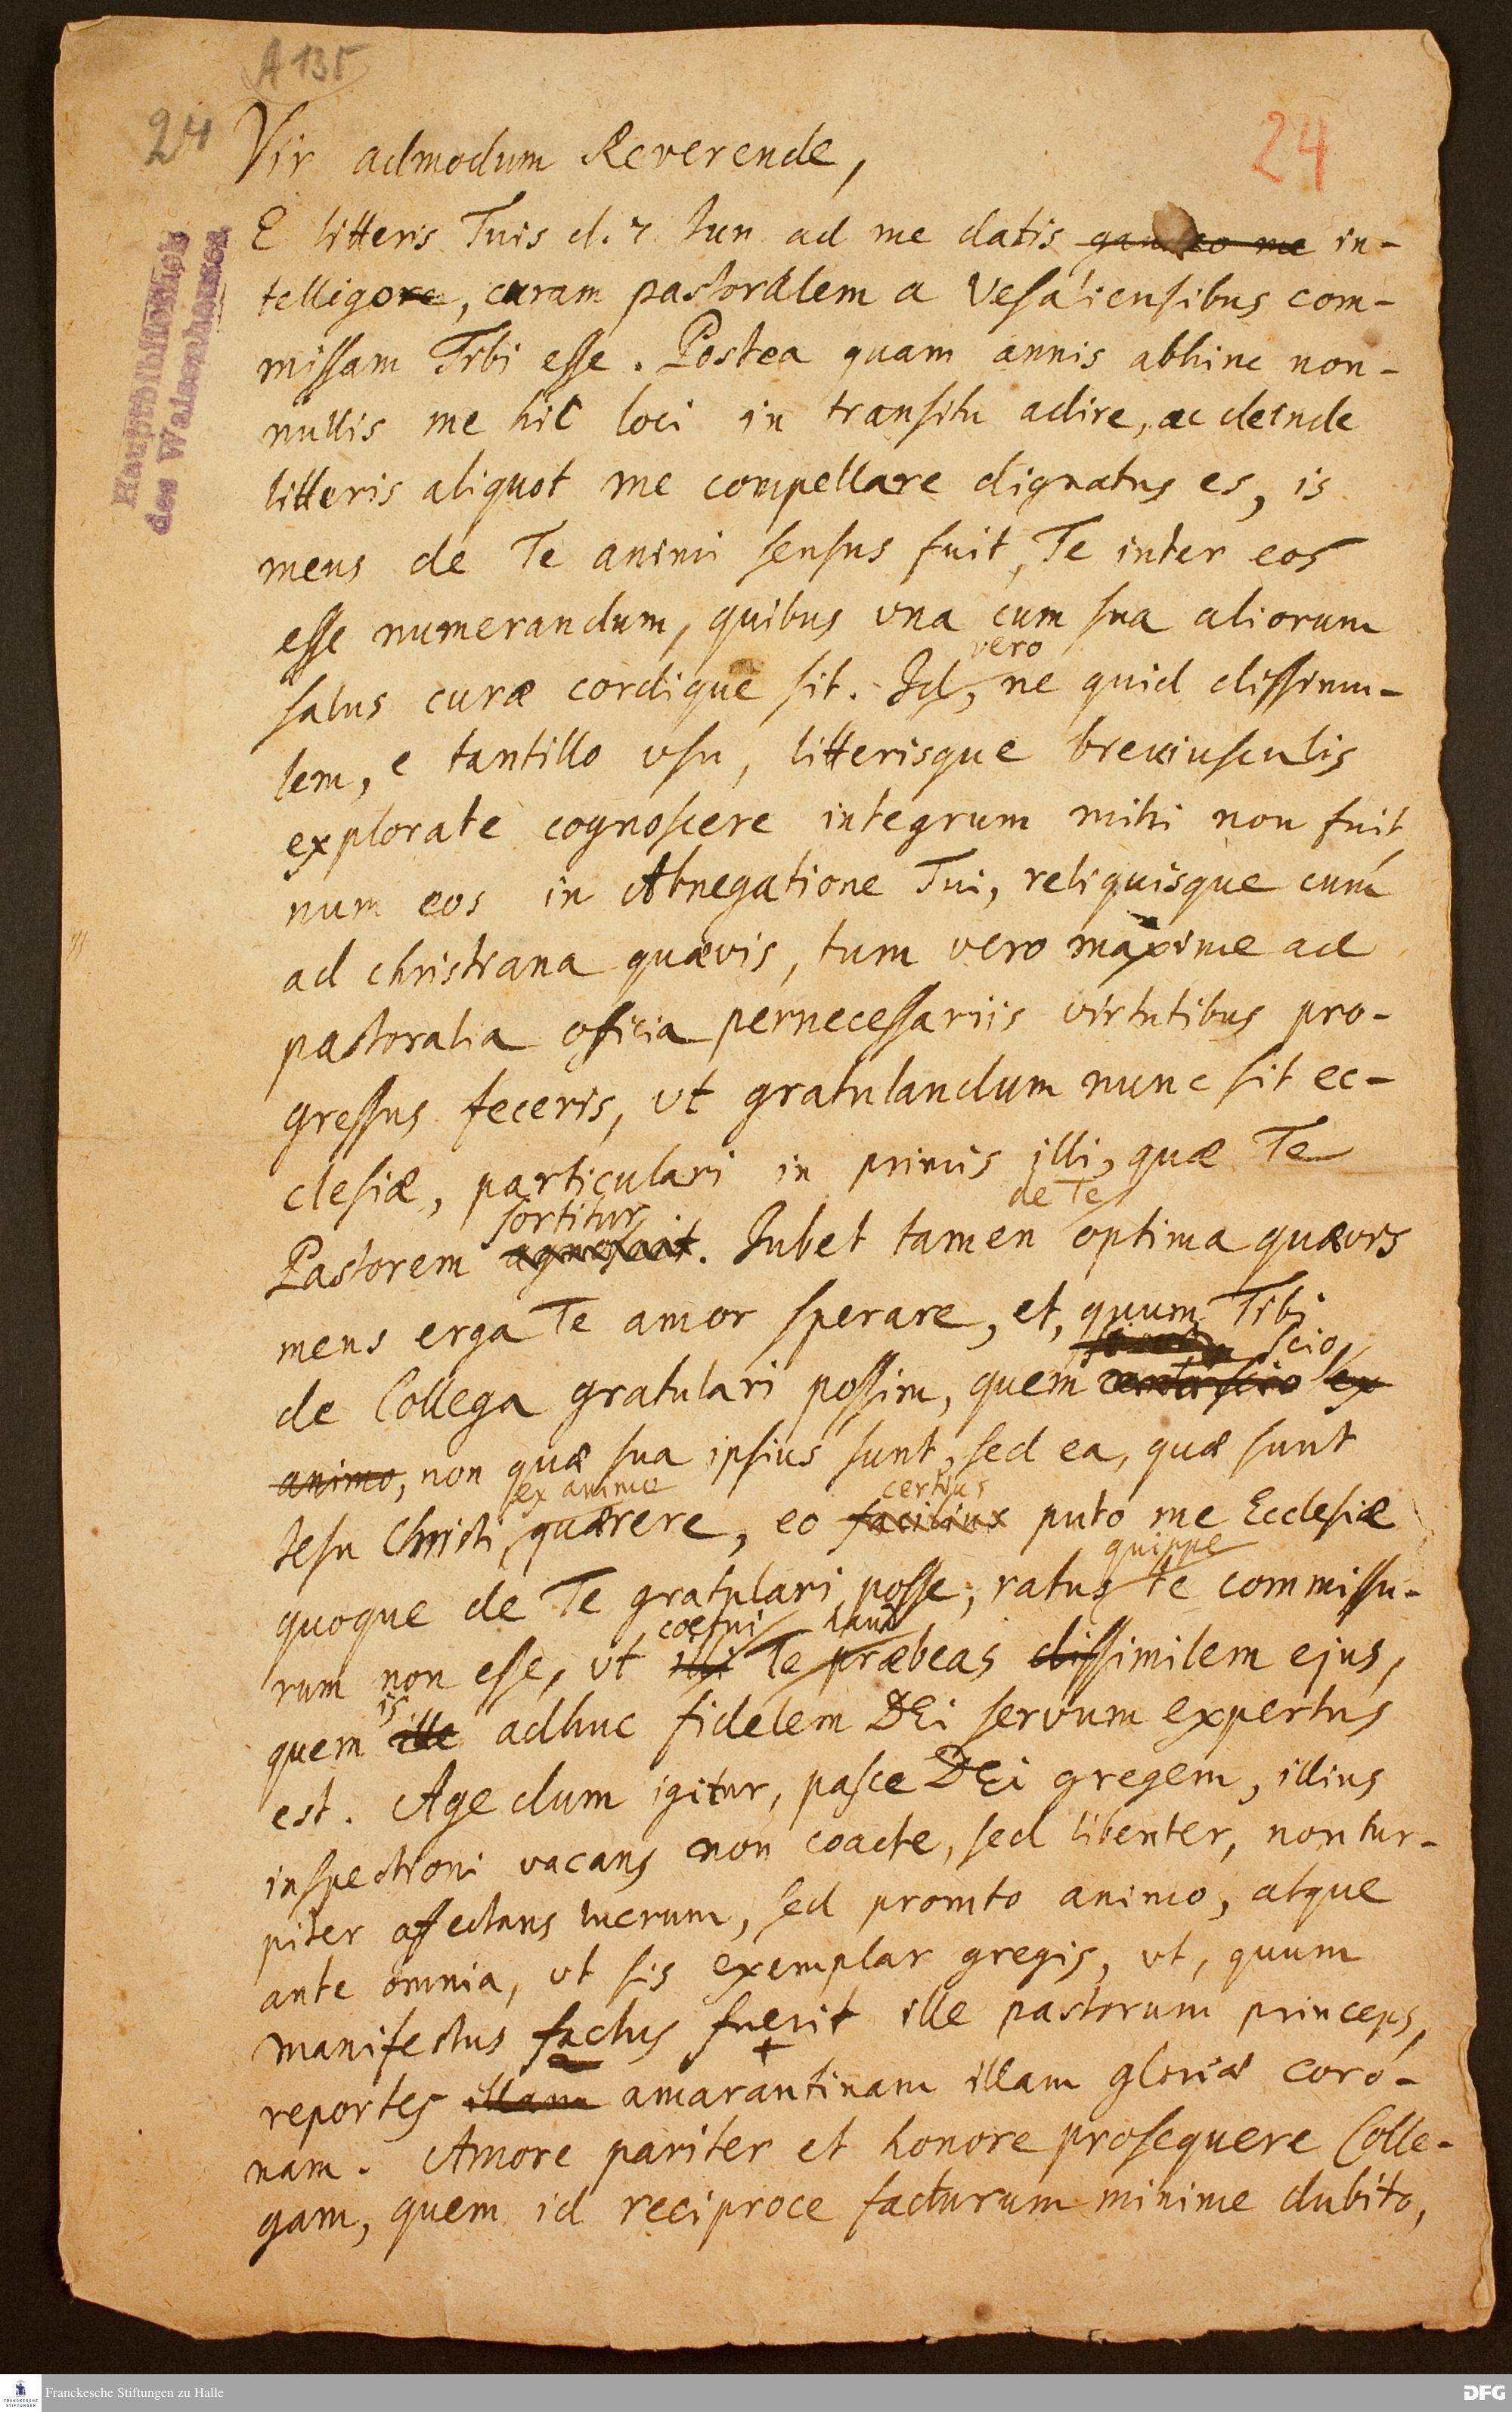 A 135
24
24
Vir admodum Reverende,
E litteris Tuis d. 7 Jun ad me datis gaudeo me in-
telligore, curam pastoralem a Vesaliensibus com-
missam Tibi esse. Postea quam annis abhinc non-
nullis me hic loci in transitu adire, ac deinde
litteris aliquot me compellare dignatus es, is
meus de Te animi sensus fuit, Te inter eos
esse numerandum, quibus una cum sua aliorum
vero
salus curæ cordique sit. Id, ne quid dissimu-
lem, e tantillo usu, litterisque breviusculis
explorate cognoscere integrum mihi non fuit,
num eos in Abnegatione Tui, reliquisque cum
ad christiana quævis, tum vero maxime ad
pastoralia officia pernecessariis virtutibus pro-
gressus feceris, ut gratulandum nunc sit ec-
clesiæ, particulari in primis illi, quæ Te
sortitur de Te
Pastorem agnoscit. Jubet tamen optima quævis
meus erga Te amor sperare, et, quum Tibi
scio
de Collega gratulari possim, quem ex
animo, non quæ sua ipsius sunt, sed ea, quæ sunt
ex animo certius
Jesu Christi, quærere, eo facilius puto me Ecclesiæ
quippe
quoque de Te gratulari posse; ratus te commissu-
coetui haud
rum non esse, ut illi Te præbeas dissimilem ejus,
is
quem ille adhuc fidelem DEi servum expertus
est. Age dum igitur, pasce DEi gregem, illius
inspectioni vacans non coacte, sed libenter, non tur-
piter affectans lucrum, sed promto animo, atque
ante omnia, ut sis exemplar gregis, ut, quum
manifestus factus fuerit ille pastorum princeps,
reportes illam amarantinam illam gloriæ coro-
nam. Amore pariter et honore prosequere Colle-
gam, quem id reciproce facturum minime dubito,
Hauptbibliothek
des Waisenhauses
Franckesche Stiftungen zu Halle
DFG